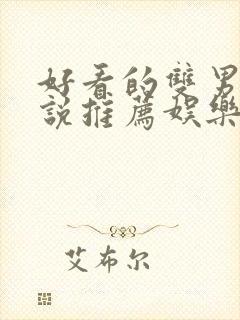 好看的雙男
說推薦娛樂
艾布尔